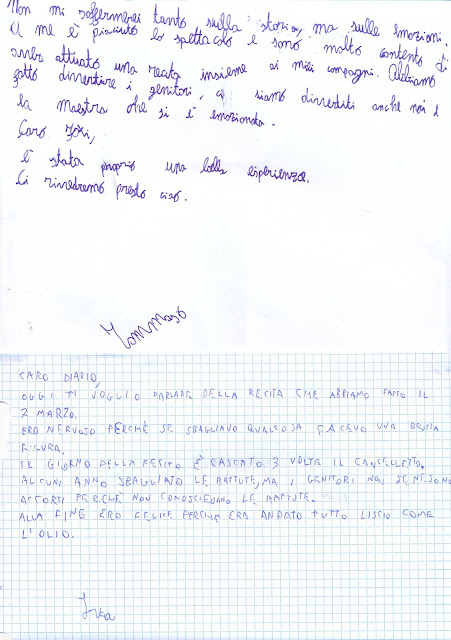 Non mi soffermerei tanto sulla storia, ma sulle emozioni.
A me è piaciuto lo spettacolo e sono molto contento di
aver attuato una recita insieme ai miei compagni. Abbiamo
fatto divertire i genitori, ci siamo divertiti anche noi e
la maestra che si è emozionata.
Caro
è stata proprio una bella esperienza.
Ci rivedremo presto ciao.
Tommaso
CARO DIARIO,
OGGI TI VOGLIO PARLARE DELLA RECITA CHE ABBIAMO FATTO IL
2 MARZO.
ERO NERVOSO PERCHÈ SE SBAGLIAVO QUALCOSA FACEVO UNA BRUTTA
FIGURA.
IL GIORNO DELLA RECITA È CASCATO 3 VOLTE IL CANCELLETTO,
ALCUNI ANNO SBAGLIATO LE BATTUTE, MA I GENITORI NON SE NE SONO
ACCORTI PERCHÈ NON CONOSCIEVANO LE BATTUTE.
ALLA FINE ERO FELICE PERCHÈ ERA ANDATO TUTTO LISCIO COME
L'OLIO.